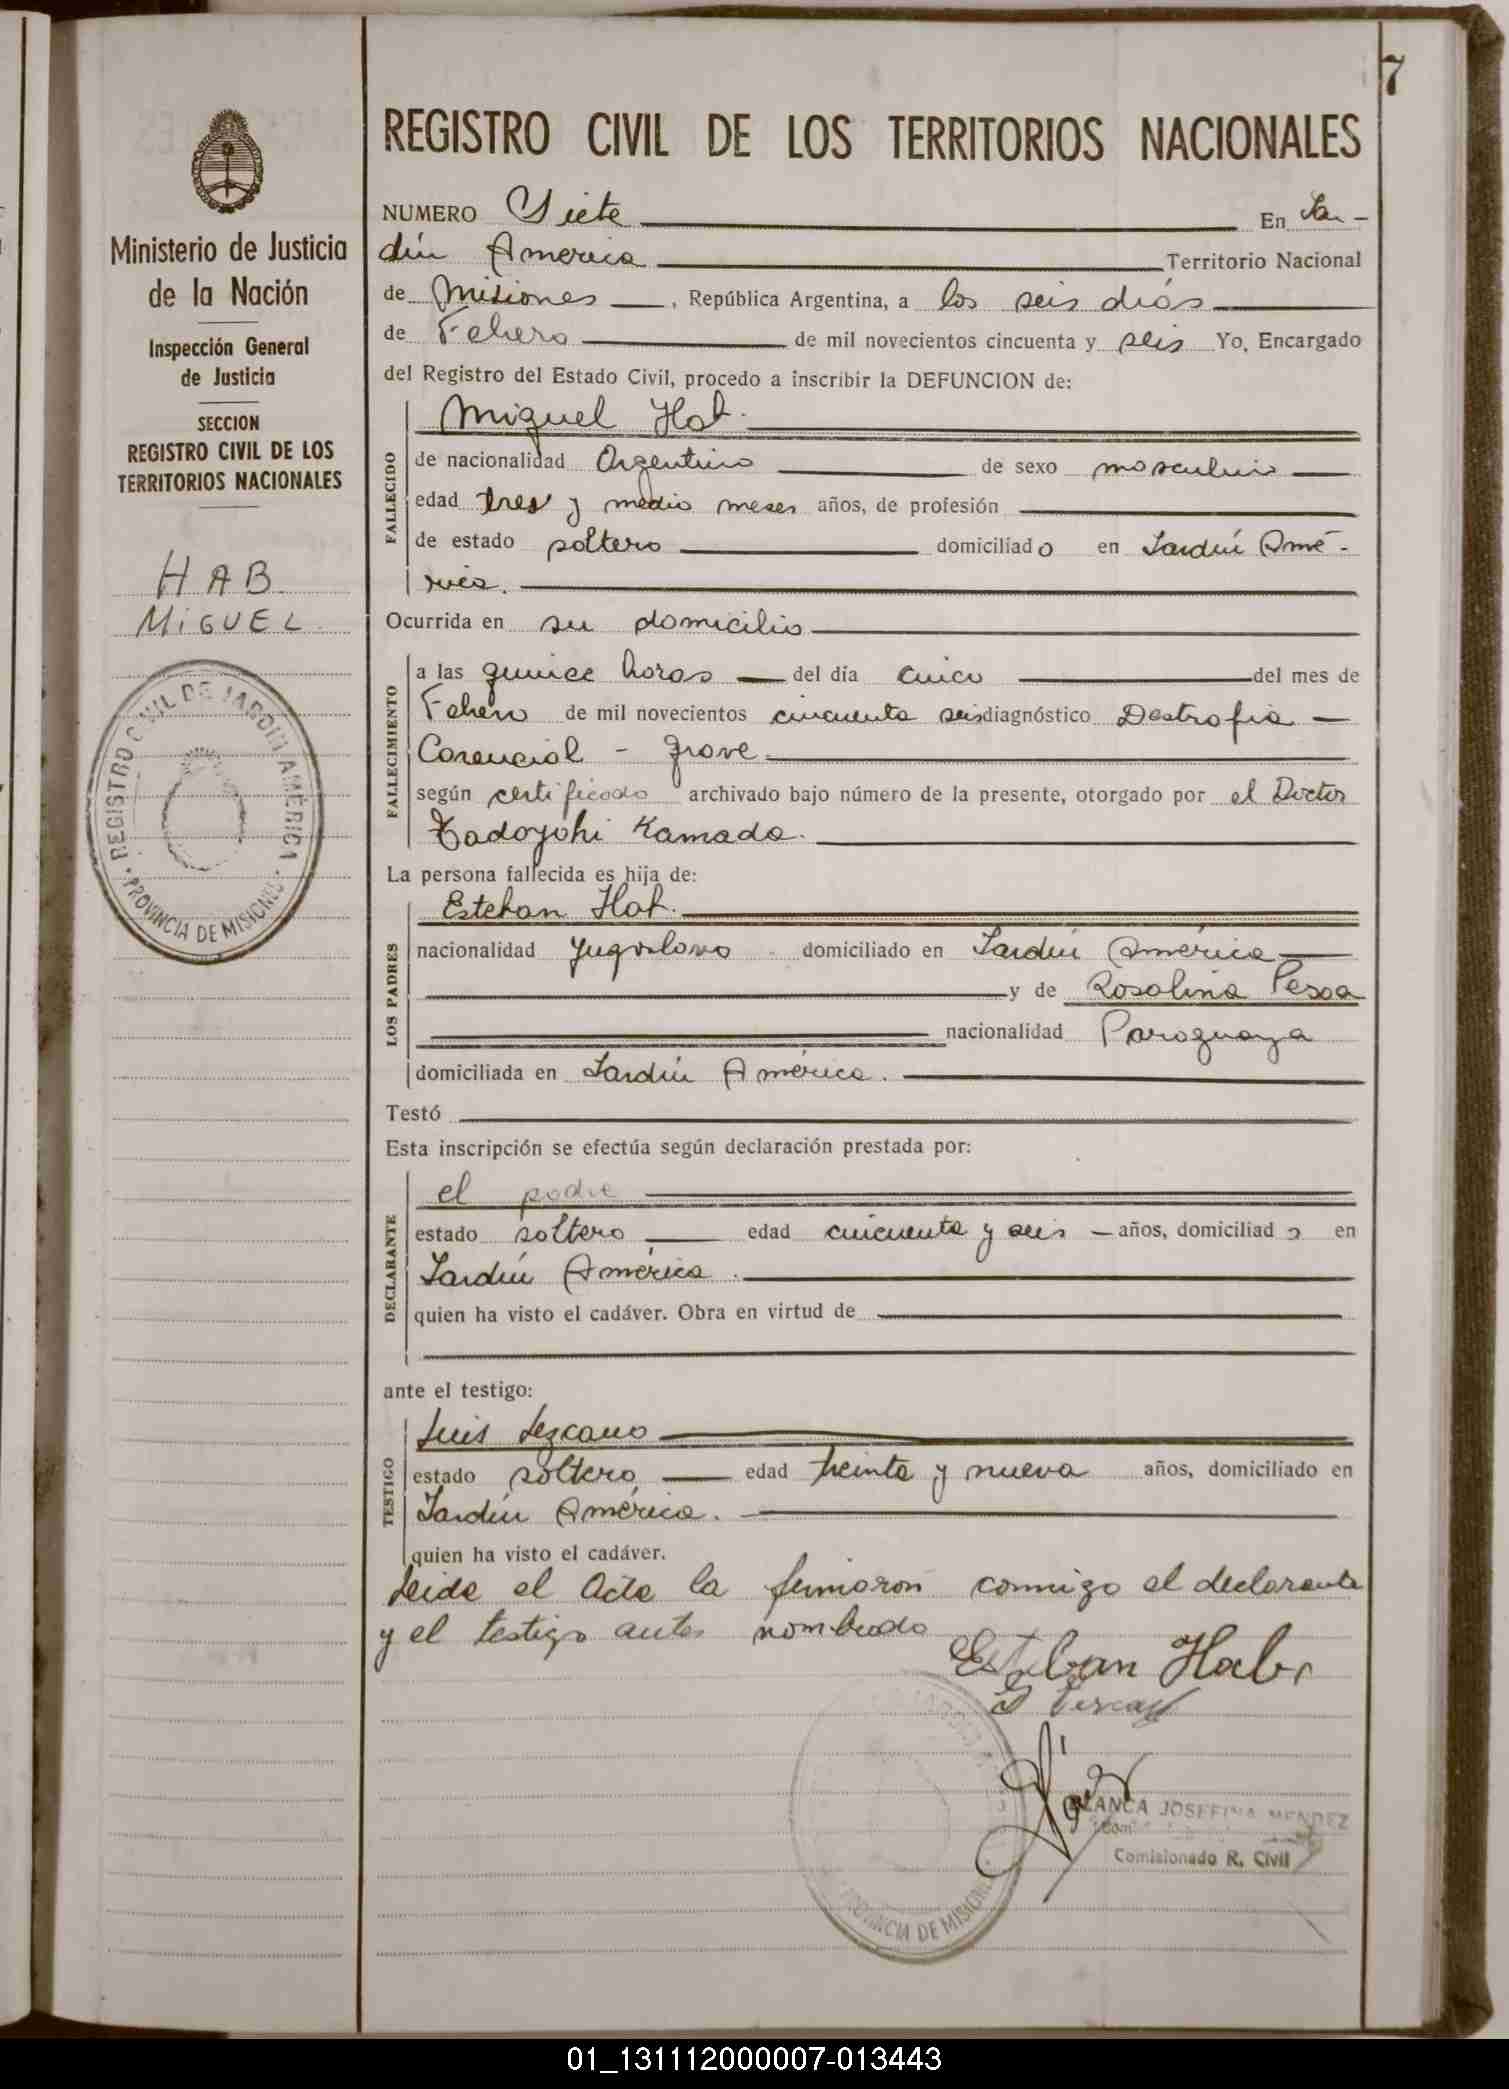 7
REGISTRO CIVIL DE LOS TERRITORIOS NACIONALES
Ministerio de Justicia
de la Nación
Inspección General
de Justicia
SECCION
REGISTRO CIVIL DE LOS
TERRITORIOS NACIONALES
HAB
MIGUEL
REGISTRO CIVIL DE JARDIN AMÉRICA
PROVINCIA DE MISIONES
NUMERO Siete En Jar-
dín America Territorio Nacional
de Misiones, República Argentina, a los seis días
de Febrero de mil novecientos cincuenta y seis Yo, Encargado
del Registro del Estado Civil, procedo a inscribir la DEFUNCION de:
Miguel Hab.
FALLECIDO
de nacionalidad Argentino de sexo masculino
edad tres y medio meses años, de profesión
de estado soltero domiciliado en Jardín Amé-
rica.
Ocurrida en su domicilio
FALLECIMIENTO
a las quince horas del día cinco del mes de
Febrero de mil novecientos cincuenta seis diagnóstico Destrofia
Carencial - grave
según certificado archivado bajo número de la presente, otorgado por el Doctor
Tadoyohi Kamada.
La persona fallecida es hija de:
LOS PADRES
Esteban Hab.
nacionalidad Yugoslavo domiciliado en Jardín América
y de Rosalina Pesoa
nacionalidad Paraguaya
domiciliada en Jardín América.
Testó
Esta inscripción se efectúa según declaración prestada por:
DECLARANTE
el padre
estado soltero edad cincuenta y seis años, domiciliado en
Jardín América.
quien ha visto el cadáver. Obra en virtud de
ante el testigo:
TESTIGO
Luis Lezcano
estado soltero, edad treinta y nueva años, domiciliado en
Jardín América.
quien ha visto el cadáver.
Leida el Acta la firmaron conmigo el declarante
y el testigo antes nombrado
Esteban Hab
BLANCA JOSEFINA MENDEZ
Comisionado R. Civil
PROVINCIA DE MISIONES
01_131112000007-013443